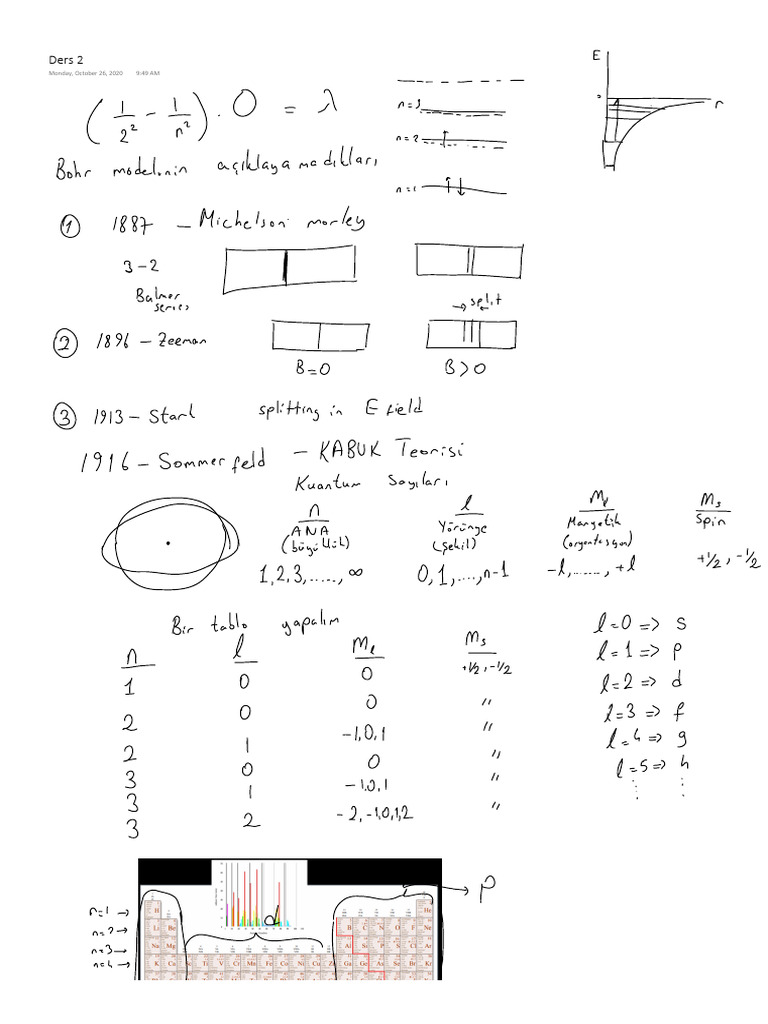 Ders 2
Monday, October 26, 2020 9:49 AM
(1/2² - 1/n²) . O = λ
E
r
n=3
n=2
n=1
Bohr modelinin açıklayamadıkları
① 1887 – Michelson morley
3-2
Balmer series
split
② 1896 – Zeeman
B=0
B>0
③ 1913 – Stark splitting in E field
1916 – Sommerfeld – KABUK Teorisi
Kuantum Sayıları
n l Ml Ms
ANA Yörünge Manyetik Spin
(büyüklük) (şekil) (oryentasyon)
1,2,3,....., ∞ 0,1,....,n-1 -l,......, +l +1/2, -1/2
Bir tablo yapalım
n l Ml Ms
+1/2, -1/2
1 0 0
2 0 0 "
2 1 -1,0,1 "
3 0 0 "
3 1 -1,0,1 "
3 2 -2,-1,0,1,2 "
l=0 => s
l=1 => p
l=2 => d
l=3 => f
l=4 => g
l=5 => h
d
p
n=1
n=2
n=3
n=4
H He
Li Be B C N O F Ne
Na Mg Al Si P S Cl Ar
K Ca Sc Ti V Cr Mn Fe Co Ni Cu Zn Ga Ge As Se Br Kr